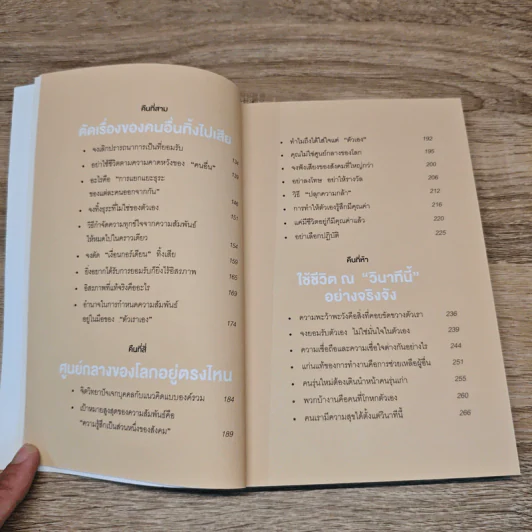 คืนที่สาม
ตัดเรื่องของคนอื่นทิ้งไปเสีย
• จงเลิกปรารถนาการเป็นที่ยอมรับ 134
• อย่าใช้ชีวิตตามความคาดหวังของ “คนอื่น”
• อะไรคือ “การแยกแยะธุระ
ของแต่ละคนออกจากกัน”
• จงทิ้งธุระที่ไม่ใช่ของตัวเอง
• วิธีกำจัดความทุกข์ใจจากความสัมพันธ์ 151
ให้หมดไปในคราวเดียว
• จงตัด “เงื่อนกอร์เดียน” ทิ้งเสีย 154
• ยิ่งอยากได้รับการยอมรับก็ยิ่งไร้อิสรภาพ 160
• อิสรภาพที่แท้จริงคืออะไร 165
• อำนาจในการกำหนดความสัมพันธ์ 169
อยู่ในมือของ “ตัวเราเอง” 174
คืนที่สี่
ศูนย์กลางของโลกอยู่ตรงไหน
• จิตวิทยาปัจเจกบุคคลกับแนวคิดแบบองค์รวม 184
• เป้าหมายสูงสุดของความสัมพันธ์คือ
“ความรู้สึกเป็นส่วนหนึ่งของสังคม” 189
• ทำไมถึงได้ใส่ใจแต่ “ตัวเอง” 192
• คุณไม่ใช่ศูนย์กลางของโลก 195
• จงฟังเสียงของสังคมที่ใหญ่กว่า 200
• อย่าลงโทษ อย่าให้รางวัล 206
• วิธี “ปลุกความกล้า” 212
• การทำให้ตัวเองรู้สึกมีคุณค่า 216
• แค่มีชีวิตอยู่ก็มีคุณค่าแล้ว 220
• อย่าเลือกปฏิบัติ 225
คืนที่ห้า
ใช้ชีวิต ณ “วินาทีนี้”
อย่างจริงจัง
• ความพะว้าพะวังคือสิ่งที่คอยขัดขวางตัวเรา 236
• จงยอมรับตัวเอง ไม่ใช่มั่นใจในตัวเอง 239
• ความเชื่อถือและความเชื่อใจต่างกันอย่างไร 244
• แก่นแท้ของการทำงานคือการช่วยเหลือผู้อื่น 251
• คนรุ่นใหม่ต้องเดินนำหน้าคนรุ่นเก่า 255
• พวกบ้างานคือคนที่โกหกตัวเอง 260
• คนเรามีความสุขได้ตั้งแต่วินาทีนี้ 266